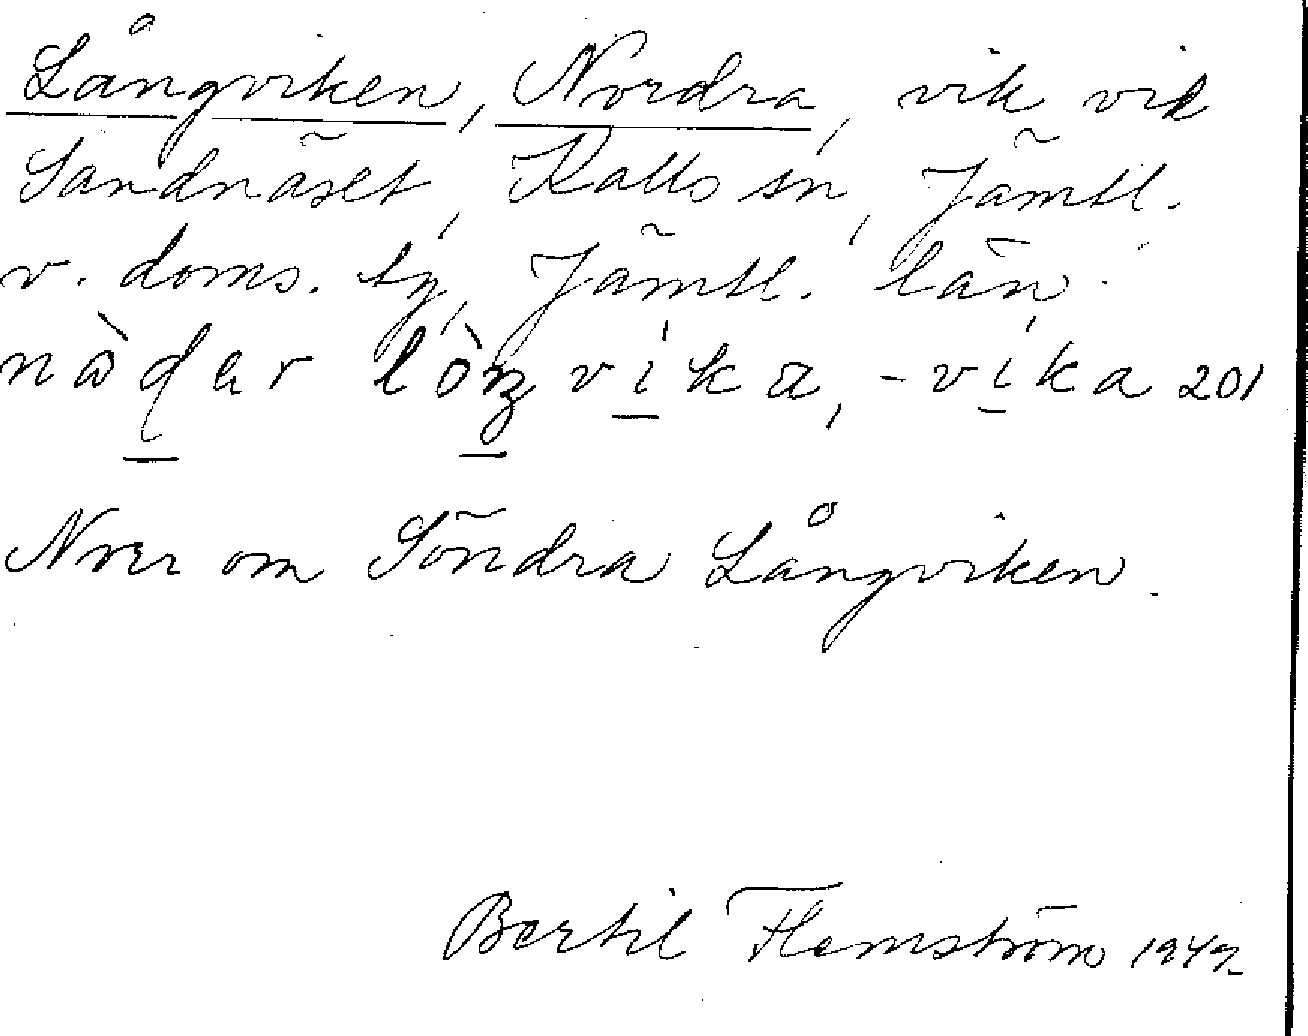 Långviken, Nordra, vik vid
Sandnäset, Kalls sn, Jämtl.
v. doms. tg, Jämtl. län.
vi̱ka, -vi̱ka 201
N. om Söndra Långviken.
Bertil Flemström 1947